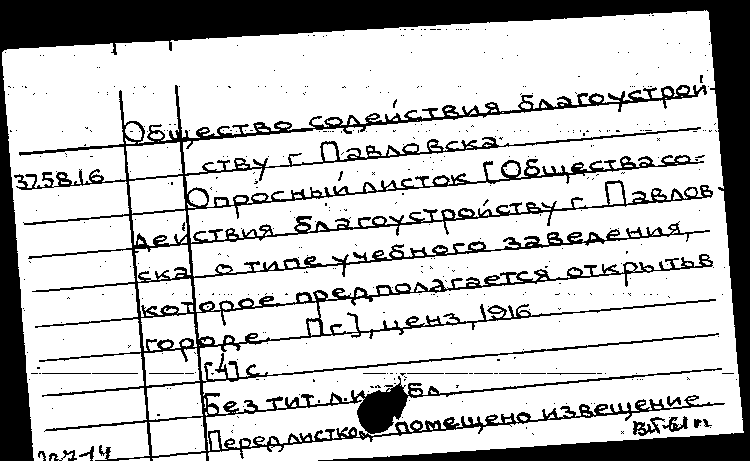 Общество содействия благоустрой-
ству г. Павловска.
37.58.1.6
Опросный листок [Общества со-
действия благоустройству г. Павлов-
ска о типе учебного заведения,
которое предполагается открыть в
городе. Пг.], ценз., 1916.
[4] с.
Без тит. л. и обл.
Перед листком помещено извещение.